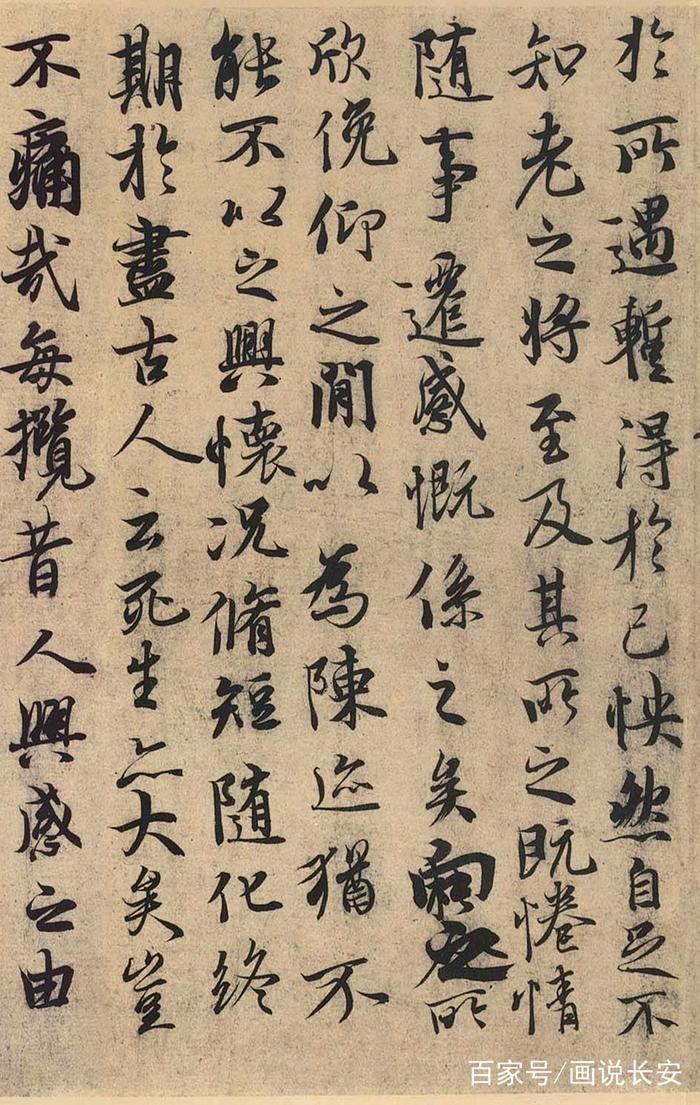 於所遇暫得於己怏然自足不
知老之将至及其所之既惓情
随事遷感慨係之矣向之所
欣俛仰之閒以為陳迹猶不
能不以之興懷況脩短随化終
期於盡古人云死生亦大矣豈
不痛哉每攬昔人興感之由
百家号/画说长安